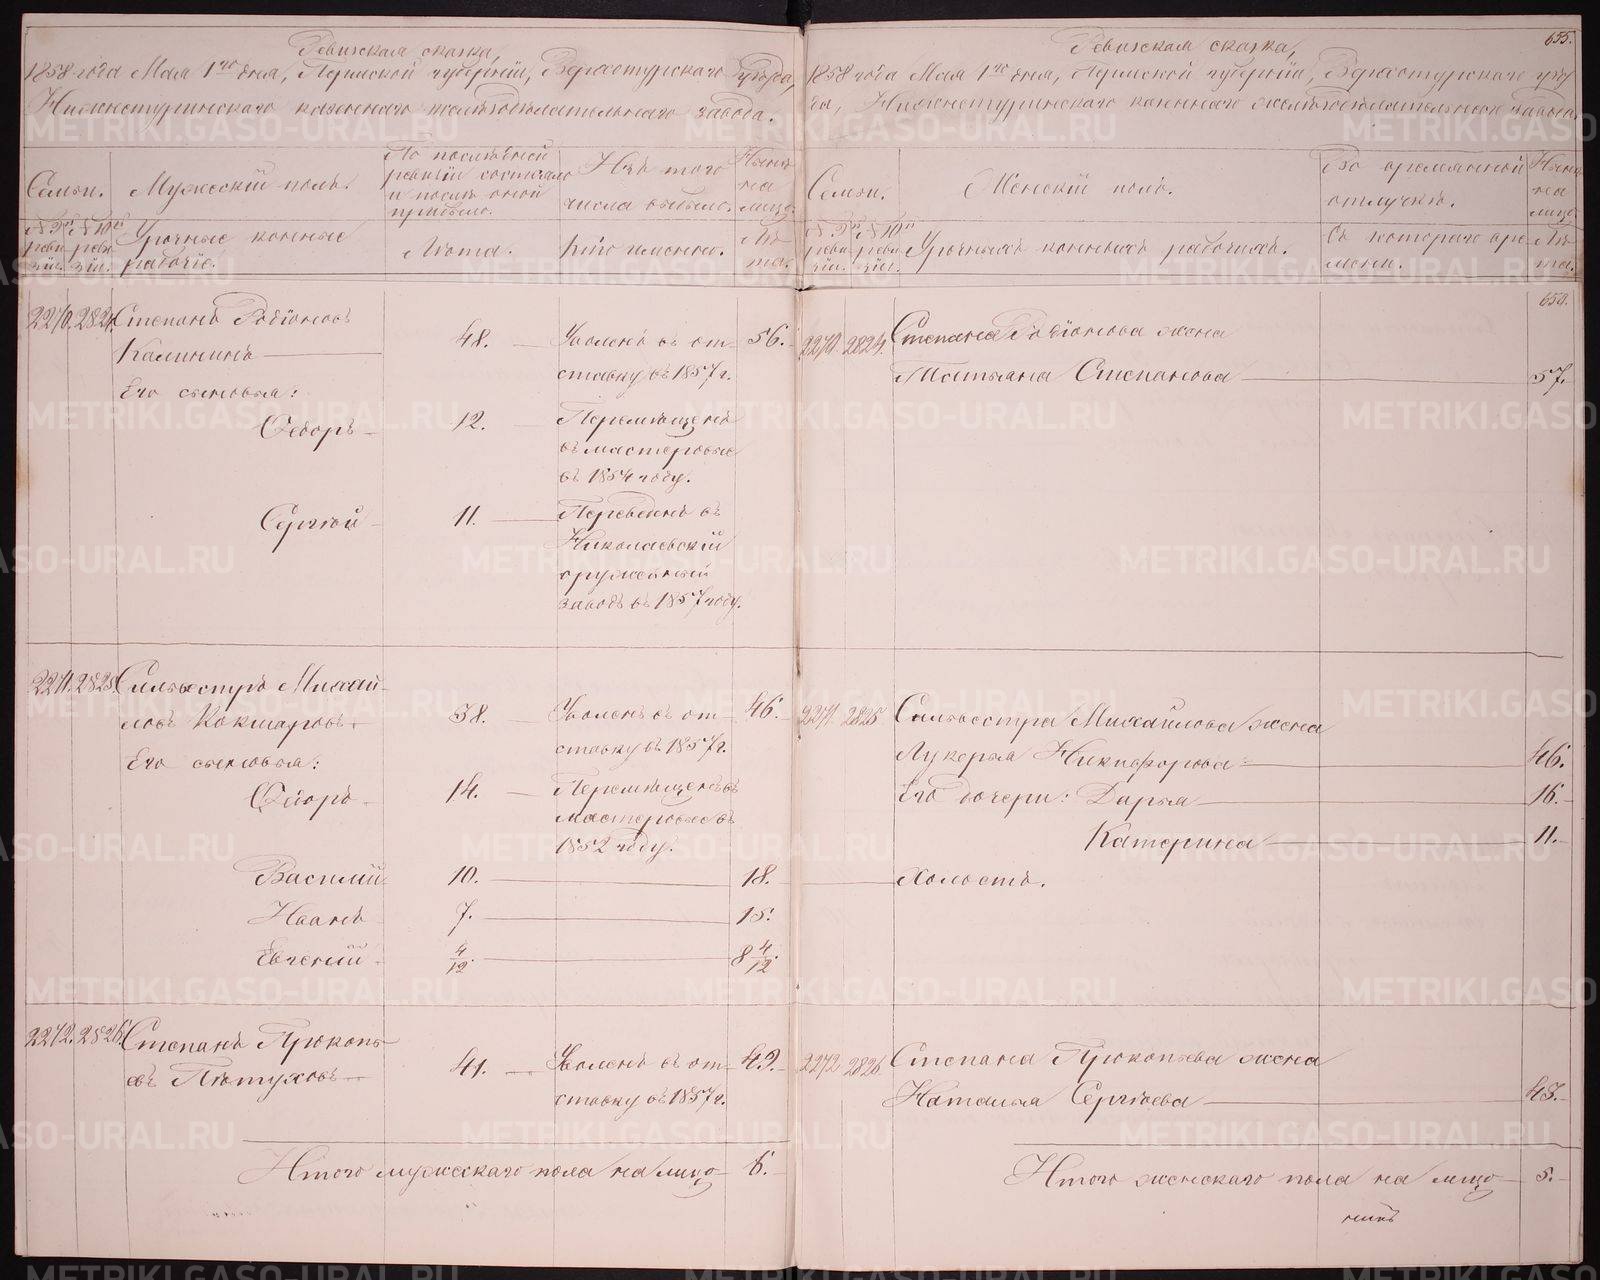 Ревизская сказка,
1858 года Мая 1го дня, Пермской губерніи, Верхотурскаго уѣзда,
Нижнетуринскаго казеннаго желѣзодѣлательнаго завода.
Семьи.
Мужескій полъ.
По послѣдней
ревизіи состояло
и послѣ оной
прибыло.
Изъ того
числа выбыло.
Нынѣ
на
лицо.
№ 9й
реви
зіи.
№ 10й
реви
зіи.
Урочные конные
рабочіе.
Лѣта.
Кто именно.
Лѣ
та.
2270. 2824. Степанъ Родіоновъ
Калининъ
48.
Уволенъ въ от-
ставку въ 1857 г.
56.
Его сыновья:
Ѳедоръ
12.
Перемѣщенъ
въ мастеровые
въ 1854 году.
Сергѣй
11.
Переведенъ въ
Николаевскій
оружейный
заводъ въ 1857 году.
2271. 2825. Сильвестръ Михай-
ловъ Кокшаровъ
38.
Уволенъ въ от-
ставку въ 1857 г.
46.
Его сыновья:
Ѳедоръ
14.
Перемѣщенъ въ
мастеровые въ
1852 году.
Василій 10. 18.
Иванъ 7. 15.
Евгеній 4/12. 8 4/12.
2272. 2826. Степанъ Прокопь-
евъ Пѣтуховъ
41.
Уволенъ въ от-
ставку въ 1857 г.
49.
Итого мужескаго пола на лицо 6.
655.
Ревизская сказка,
1858 года Мая 1го дня, Пермской губерніи, Верхотурскаго уѣз
да, Нижнетуринскаго казеннаго желѣзодѣлательнаго завода.
Семьи.
Женскій полъ.
Во временной
отлучкѣ.
Нынѣ
на
лицо
№ 9й
реви
зіи.
№ 10й
реви
зіи.
Урочныхъ конныхъ рабочихъ.
Съ котораго вре
мени.
Лѣ
та.
654.
2270. 2824. Степана Родіонова жена
Татьяна Степанова 57.
2271 2825 Сильвестра Михайлова жена
Лукерья Никифорова 46.
Его дочери: Дарья 16.
Катерина 11.
Холостъ.
2272 2826 Степана Прокопьева жена
Наталья Сергѣева 43.
Итого женскаго пола на лицо 5.
METRIKI.GASO-URAL.RU